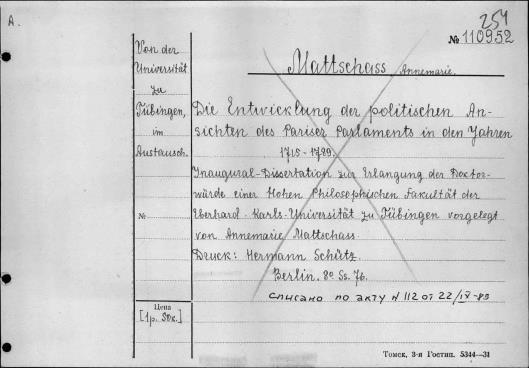 A.
254
№ 110952
Von der
Universität
zu
Tübingen,
im
Austausch.
Mattschass Annemarie.
Die Entwicklung der politischen An-
sichten des Pariser Parlaments in den Jahren
1715-1789.
Inaugural-Dissertation zur Erlangung der Doktor-
würde einer Hohen Philosophischen Fakultät der
№
Eberhard-Karls-Universität zu Tübingen vorgelegt
von Annemarie Mattschass.
Druck: Hermann Schütz.
Berlin. 8º Ss. 76.
списано по акту № 112 от 22/IV-83
Цена
[1р. 50к.]
Томск, 3-я Гостип. 5344—31